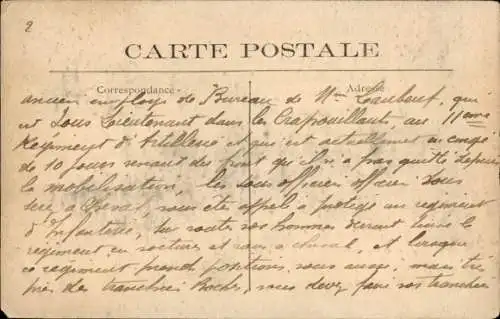 2
CARTE POSTALE
Correspondance Adresse
ancien employé de Bureau de Mme Caubeuf, qui
est Sous Lieutenant dans les Crapouillauts, au 11eme
Regiment d'Artillerie et qui est actuellement en congé
de 10 jours venant du front qu'il n'a pas quitté depuis
la mobilisation, les sous officiers officier sous
à cheval, vous ete appelé a protégé un regiment
d'Infanterie, sur routes vos hommes devront suivre le
régiment en voiture et vous a cheval, et lorsque
ce régiment prend positions, vous aussi, mais très
près des tranchées Boches, vous devez faire vos tranchées